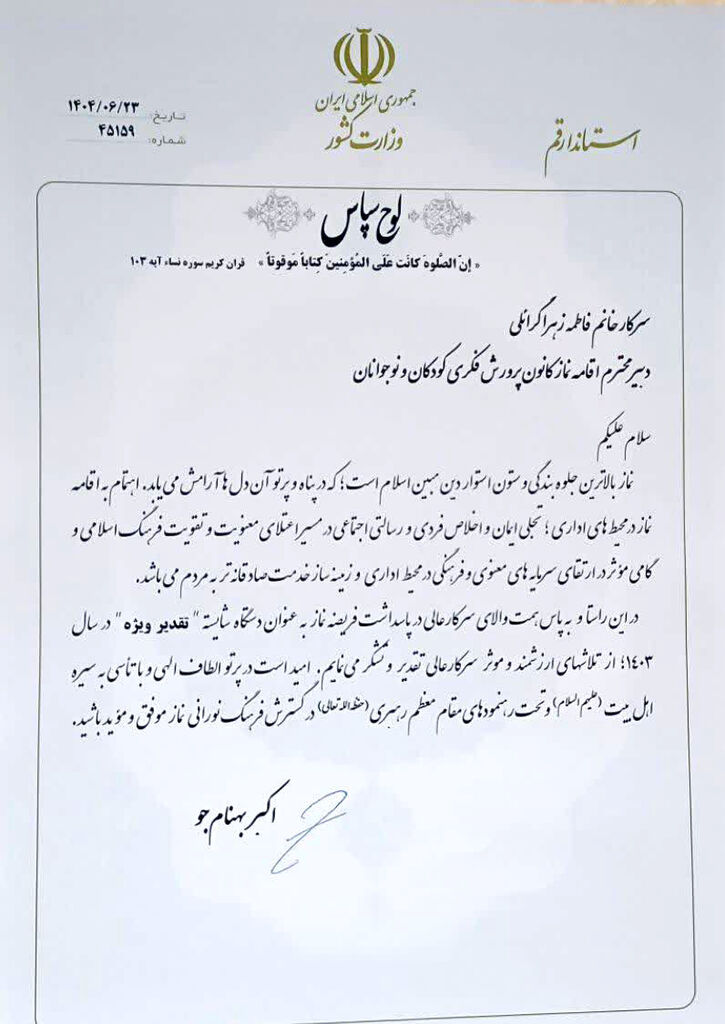 جمهوری اسلامی ایران
وزارت کشور
استاندار قم
تاریخ: ۱۴۰۴/۰۶/۲۳
شماره: ۴۵۱۵۹
لوح سپاس
« إنَ الصَّلوهَ کانَت عَلَی المُؤمِنینَ کِتاباً مَوقوتاً » قران کریم سوره نساء آیه ۱۰۳
سرکار خانم فاطمه زهرا گرائلی
دبیر محترم اقامه نماز کانون پرورش فکری کودکان و نوجوانان
سلام علیکم
نماز بالاترین جلوه بندگی و ستون استوار دین مبین اسلام است؛ که در پناه و پرتو آن دل ها آرامش می یابد. اهتمام به اقامه
نماز در محیط های اداری ؛ تجلی ایمان و اخلاص فردی و رسالتی اجتماعی در مسیر اعتلای معنویت و تقویت فرهنگ اسلامی و
گامی مؤثر در ارتقای سرمایه های معنوی و فرهنگی در محیط اداری و زمینه ساز خدمت صادقانه تر به مردم می باشد.
در این راستا و به پاس همت والای سرکار عالی در پاسداشت فریضه نماز به عنوان دستگاه شایسته " تقدیر ویژه " در سال
۱۴۰۳؛ از تلاشهای ارزشمند و موثر سرکار عالی تقدیر و تشکر می نمایم. امید است در پرتو الطاف الهی و با تأسی به سیره
اهل بیت (علیهم السلام) و تحت رهنمودهای مقام معظم رهبری (حفظه الله تعالی) در گسترش فرهنگ نورانی نماز موفق و مؤید باشید.
اکبر بهنام جو